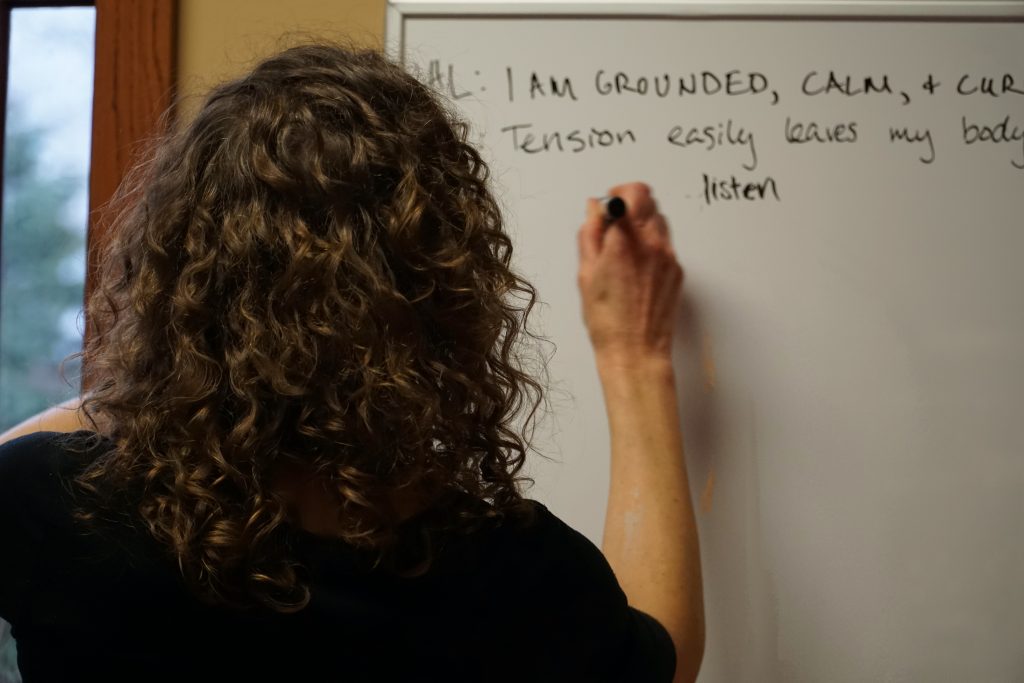 AL: I AM GROUNDED, CALM, + CUR
Tension easily leaves my body
listen